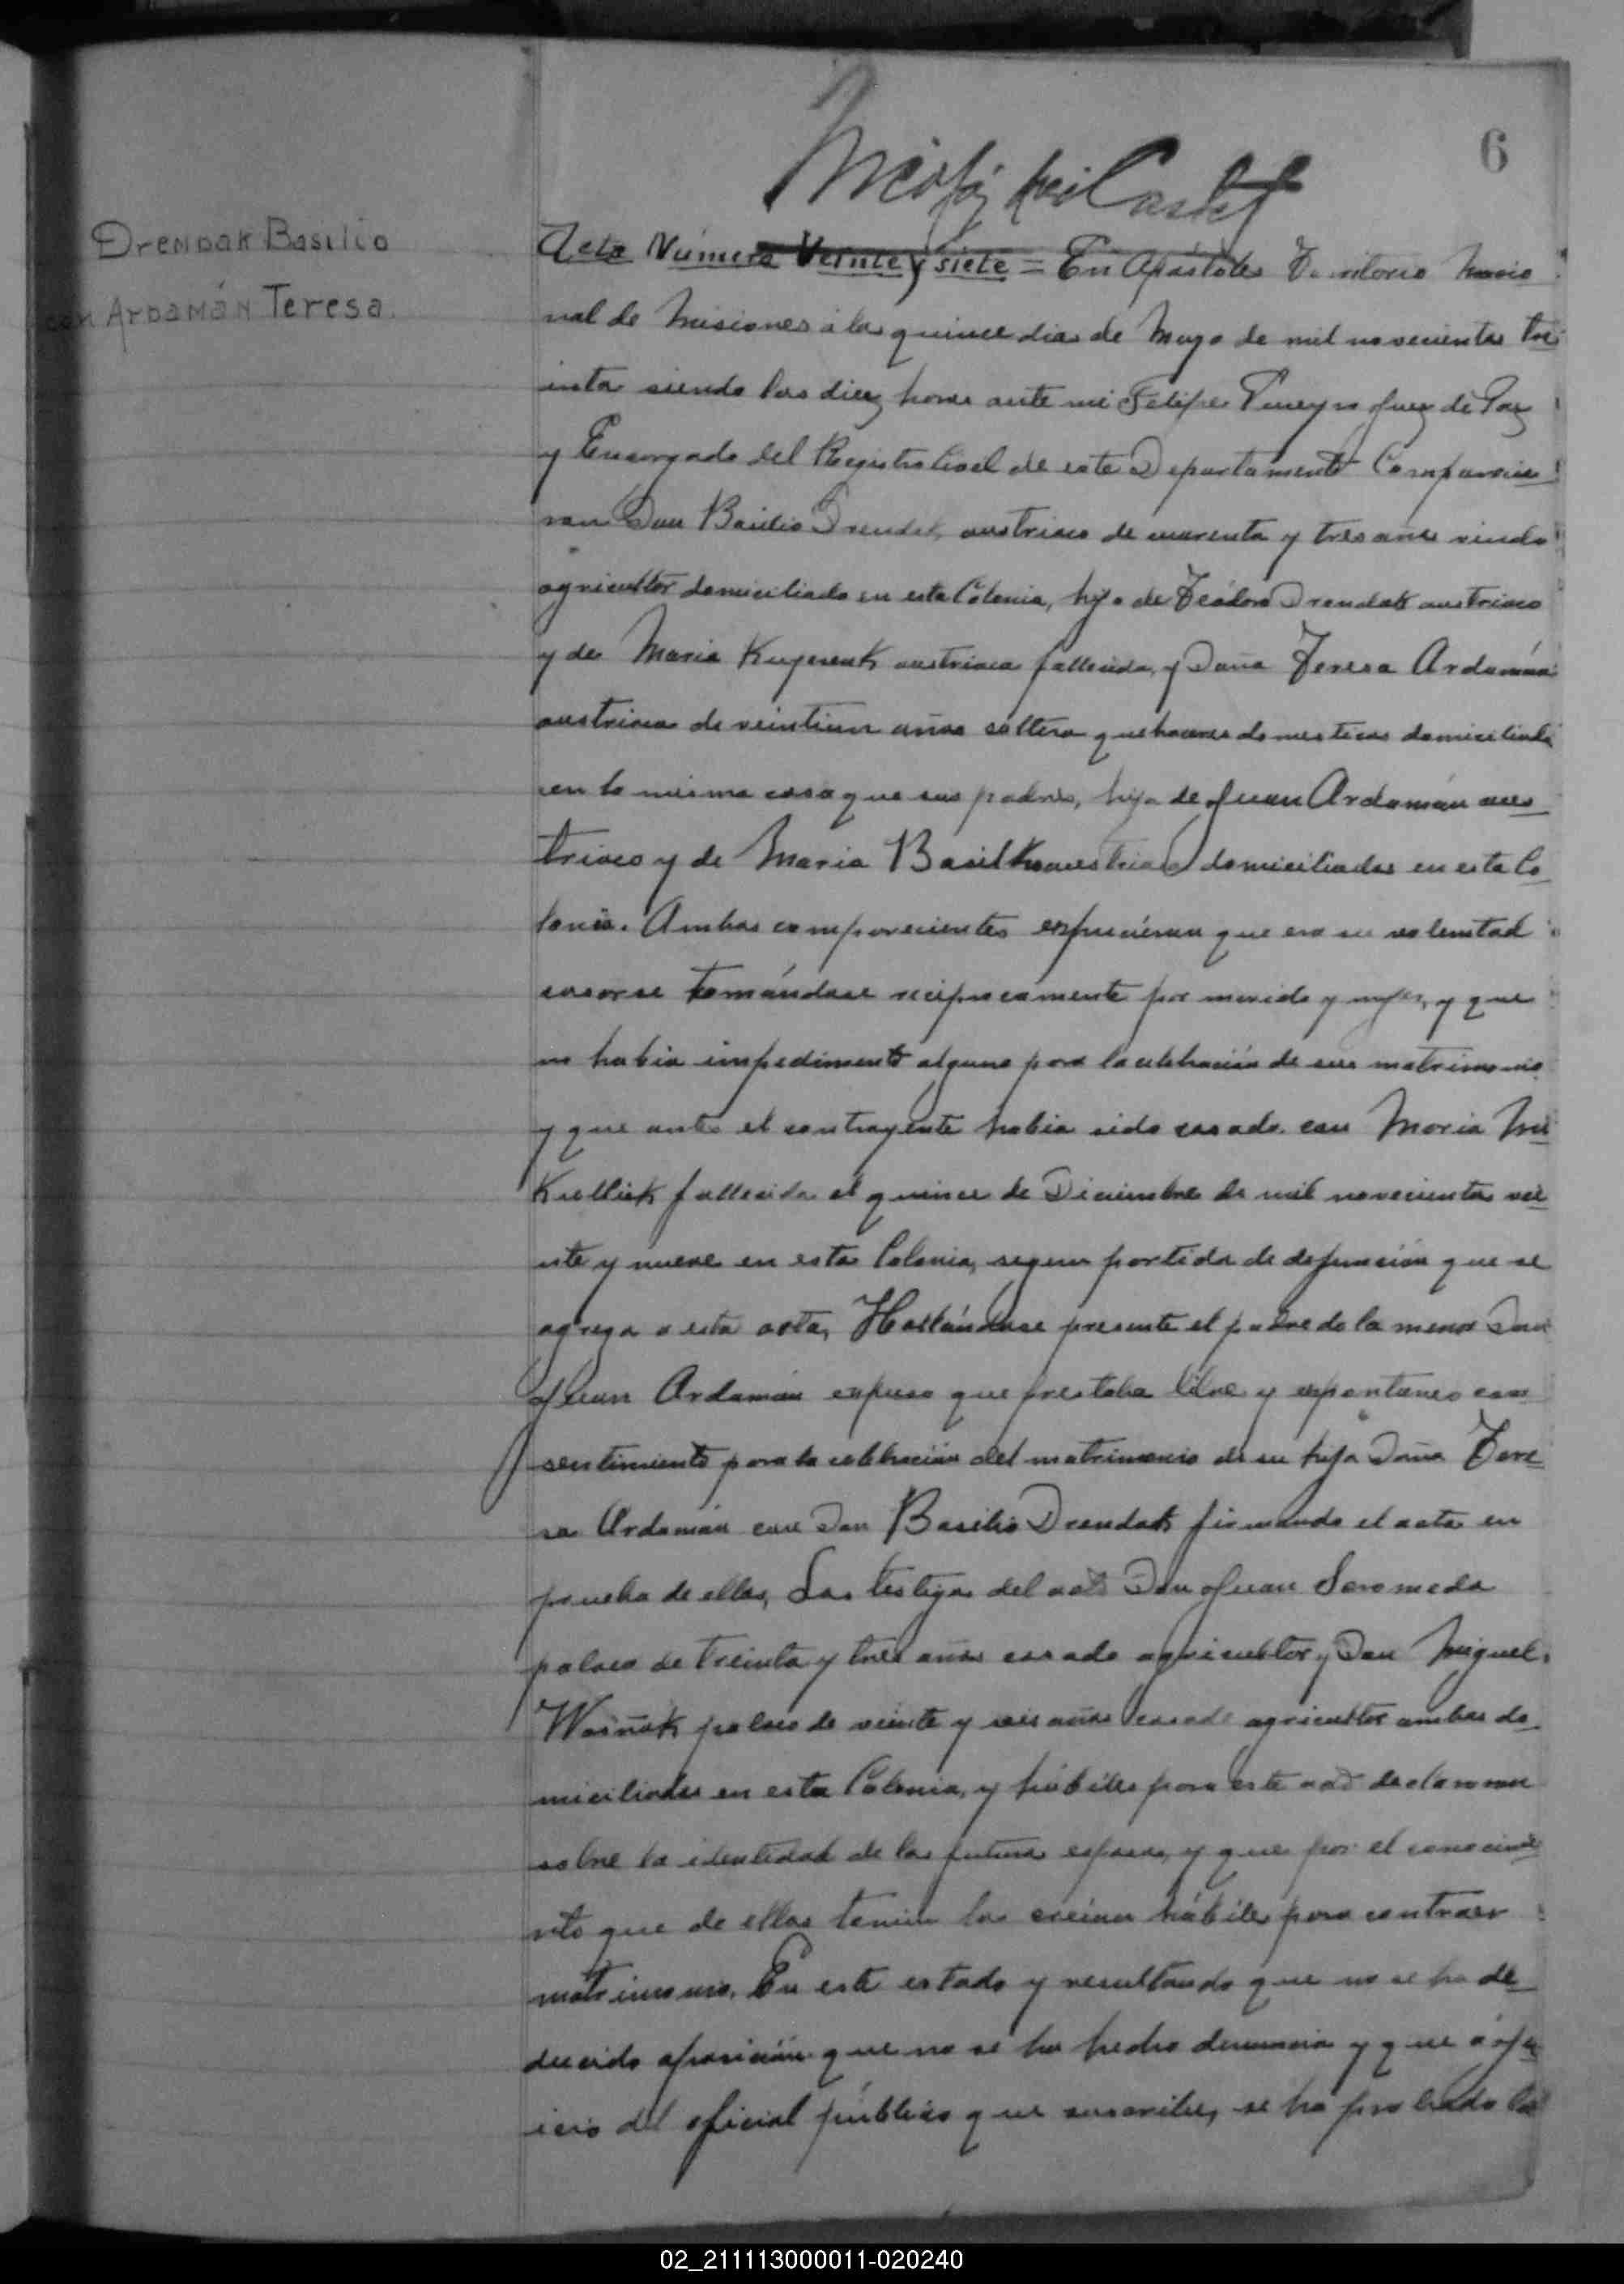 6
Drendak Basilio
con Ardamán Teresa.
Acta Número Veinte y siete = En Apóstoles Territorio Nacio
nal de Misiones á los quince dias de Mayo de mil novecientos tre
inta siendo las diez horas ante mi Felipe Pueyro Juez de Paz
y Encargado del Registro Civil de este Departamento Comparecie
ron Don Basilio Drendak, austriaco de cuarenta y tres años viudo
agricultor domiciliado en esta Colonia, hijo de Teódoro Drendak austriaco
y de Maria austriaca fallecida, y Doña Teresa Ardamán
austriaca de veintiun años soltera quehaceres domesticos domiciliada
en la misma casa que sus padres, hija de Juan Ardamán aus
triaco y de Maria Basilko austriaca domiciliados en esta Co
lonia. Ambos comparecientes expresáron que era su voluntad
casarse tomándose reciprocamente por marido y mujer, y que
no habia impedimento alguno para la celebración de sus matrimonio
y que antes el contrayente habia sido casado con Maria Mi
fallecida el quince de Diciembre de mil novecientos vei
nte y nueve en esta Colonia, segun partida de defunción que se
agrega a esta acta, Hallándose presente el padre de la menor Don
Juan Ardamán expuso que prestaba libre y espontaneo con
sentimiento para la celebración del matrimonio de su hija Doña Tere
sa Ardamán con Don Basilio Drendak firmando el acta en
prueba de ellos, Los testigos del acto Don Juan Seromeda
polaco de treinta y tres años casado agricultor y Don Miguel
Wosñak polaco de veinte y seis años casado agricultor ambos do
miciliados en esta Colonia, y hábiles para este acto declararon
sobre la identidad de los futuros esposos, y que por el conocimie
nto que de ellos tenian los creian hábiles para contraer
matrimonio. En este estado y resultando que no se ha de
ducido oposición que no se ha hecho denuncia y que á ofi
icio del oficial público que suscribe, se ha probado la
02_211113000011-020240